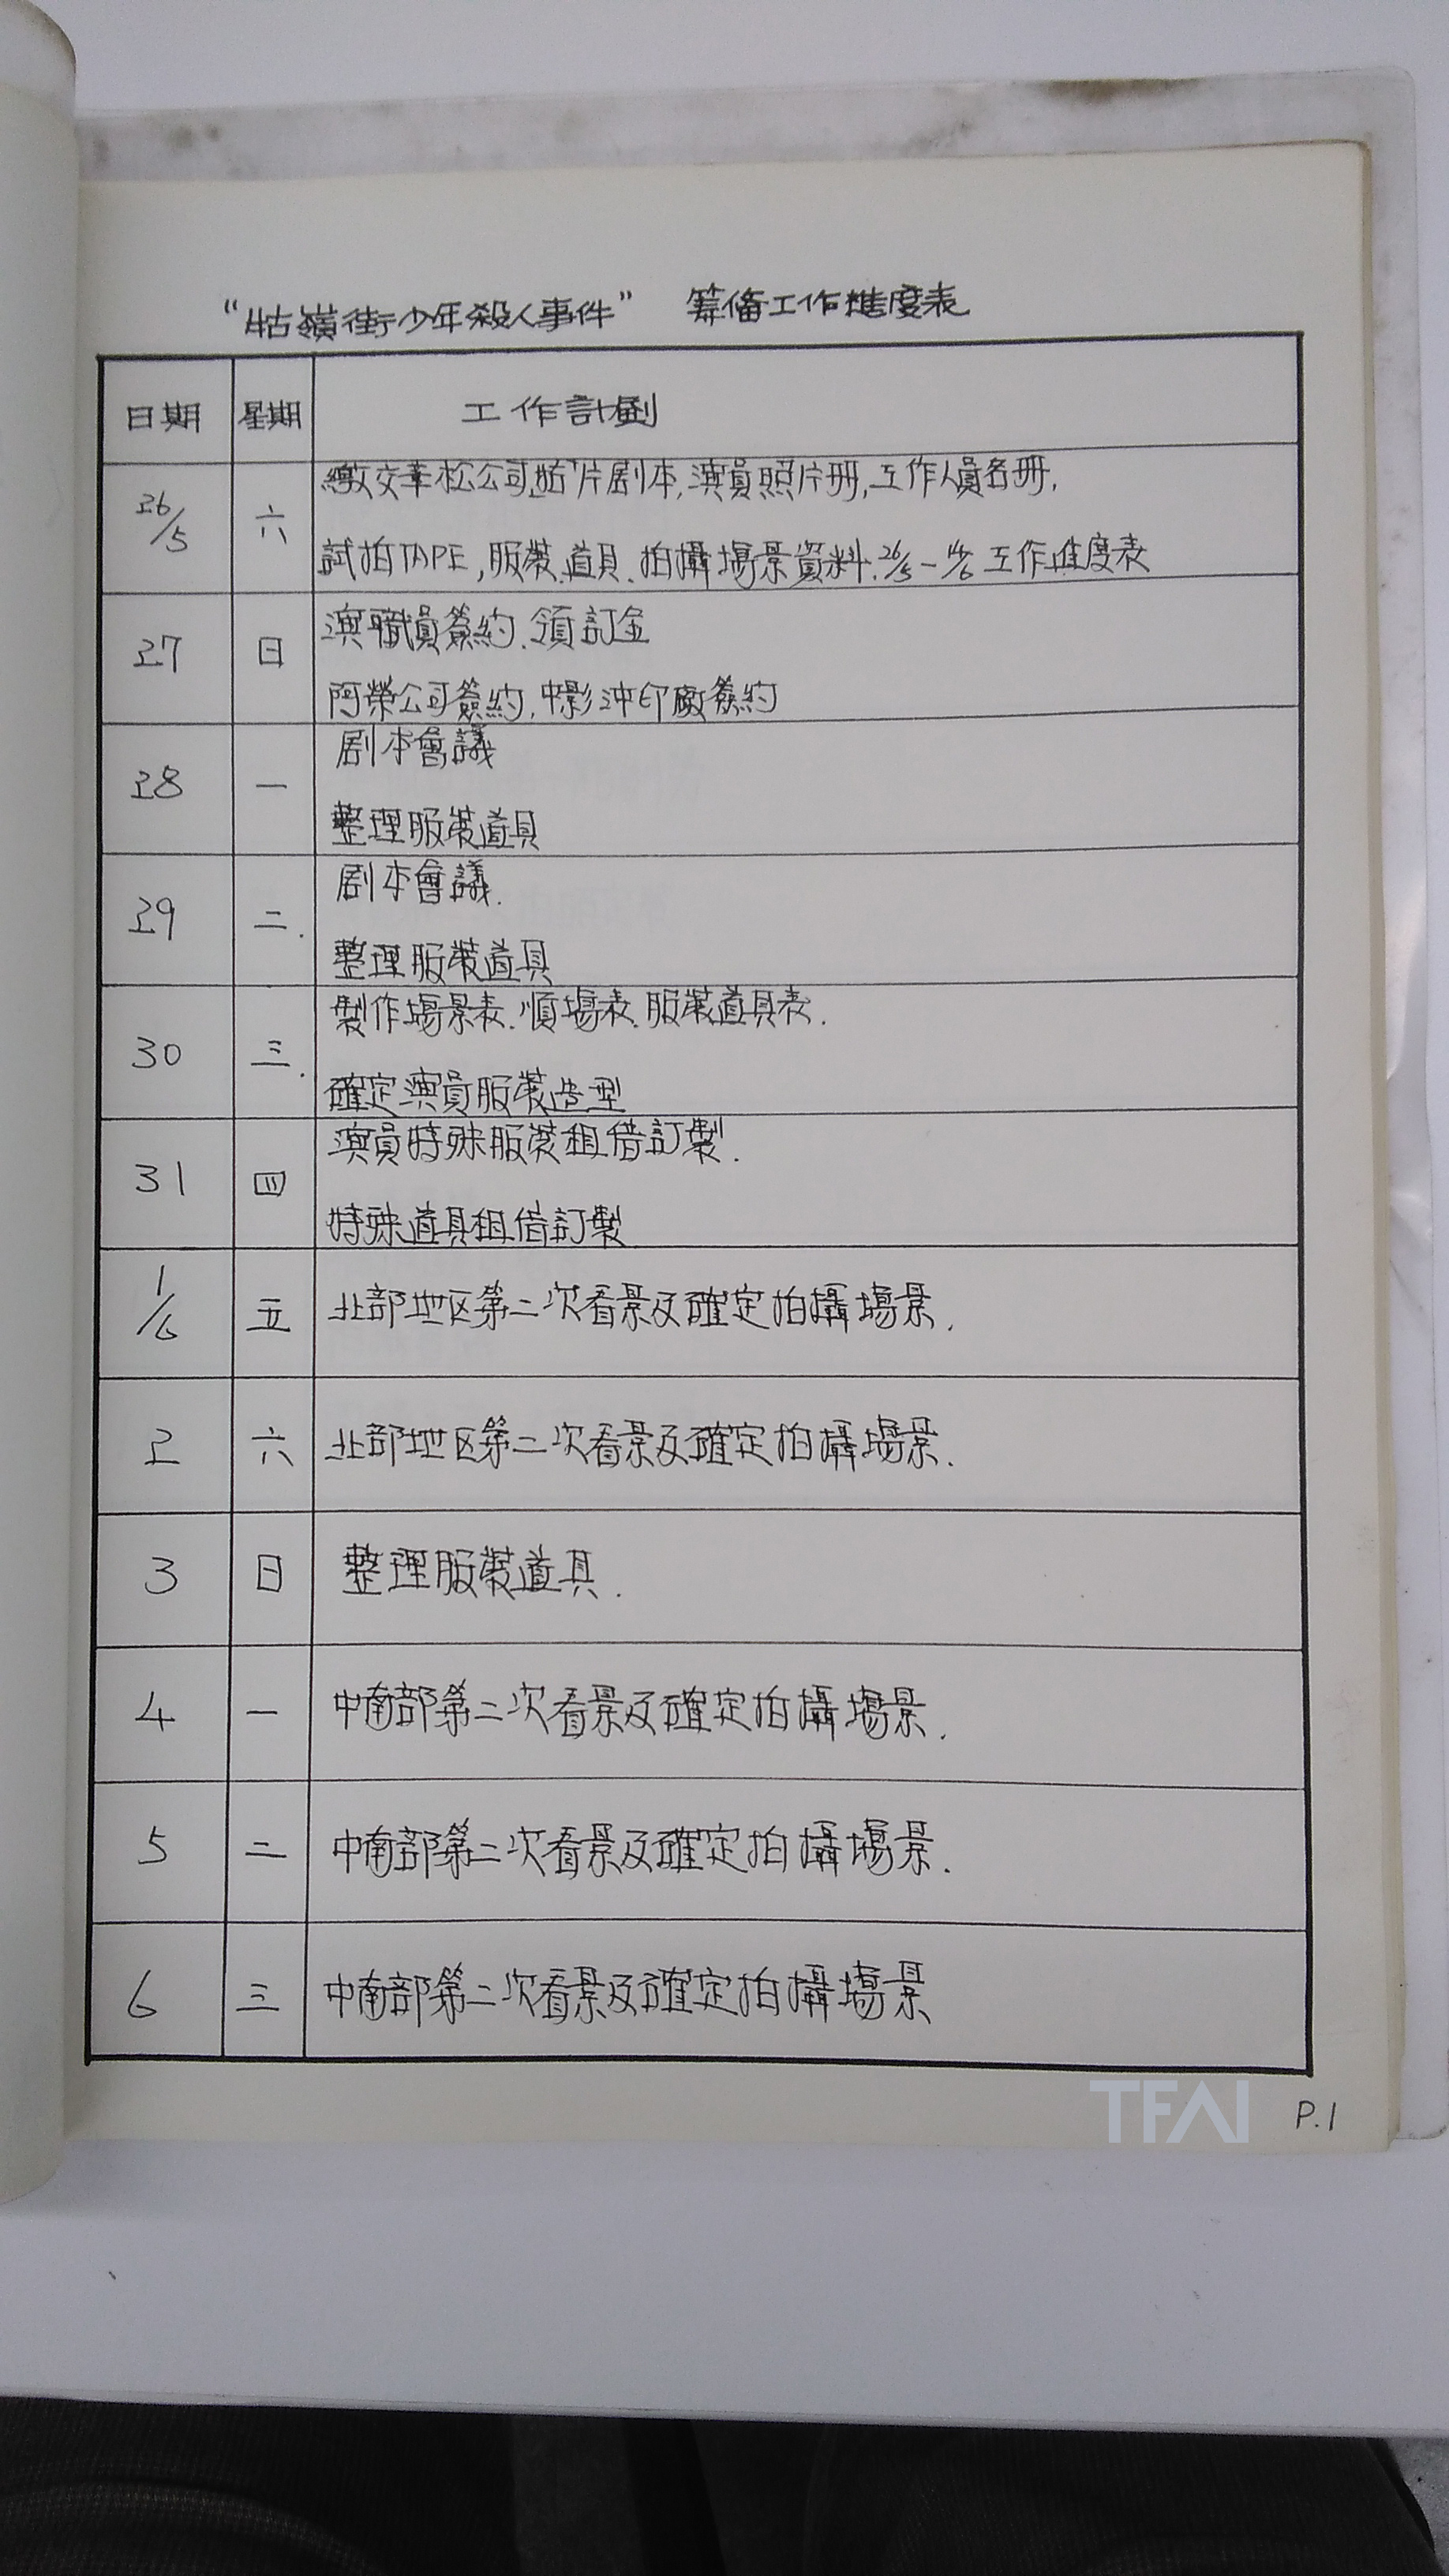 “牯嶺街少年殺人事件” 籌備工作進度表
日期 星期 工作計劃
26/5 六 繳交華松公司"牯"片劇本,演員照片册,工作人員名册,
試拍TAPE,服裝.道具.拍攝場景資料.26/5-14/6工作進度表
27 日 演職員簽約.領訂金
阿榮公司簽約,中影沖印廠簽約
28 一 劇本會議
整理服裝道具
29 二. 劇本會議.
整理服裝道具
30 三. 製作場景表.順場表.服裝道具表.
確定演員服裝造型
31 四 演員特殊服裝租借訂製.
特殊道具租借訂製
1/6 五 北部地区第二次看景及確定拍攝場景.
2 六 北部地区第二次看景及確定拍攝場景.
3 日 整理服裝道具.
4 一 中南部第二次看景及確定拍攝場景.
5 二 中南部第二次看景及確定拍攝場景.
6 三 中南部第二次看景及確定拍攝場景
TFAI
P.1